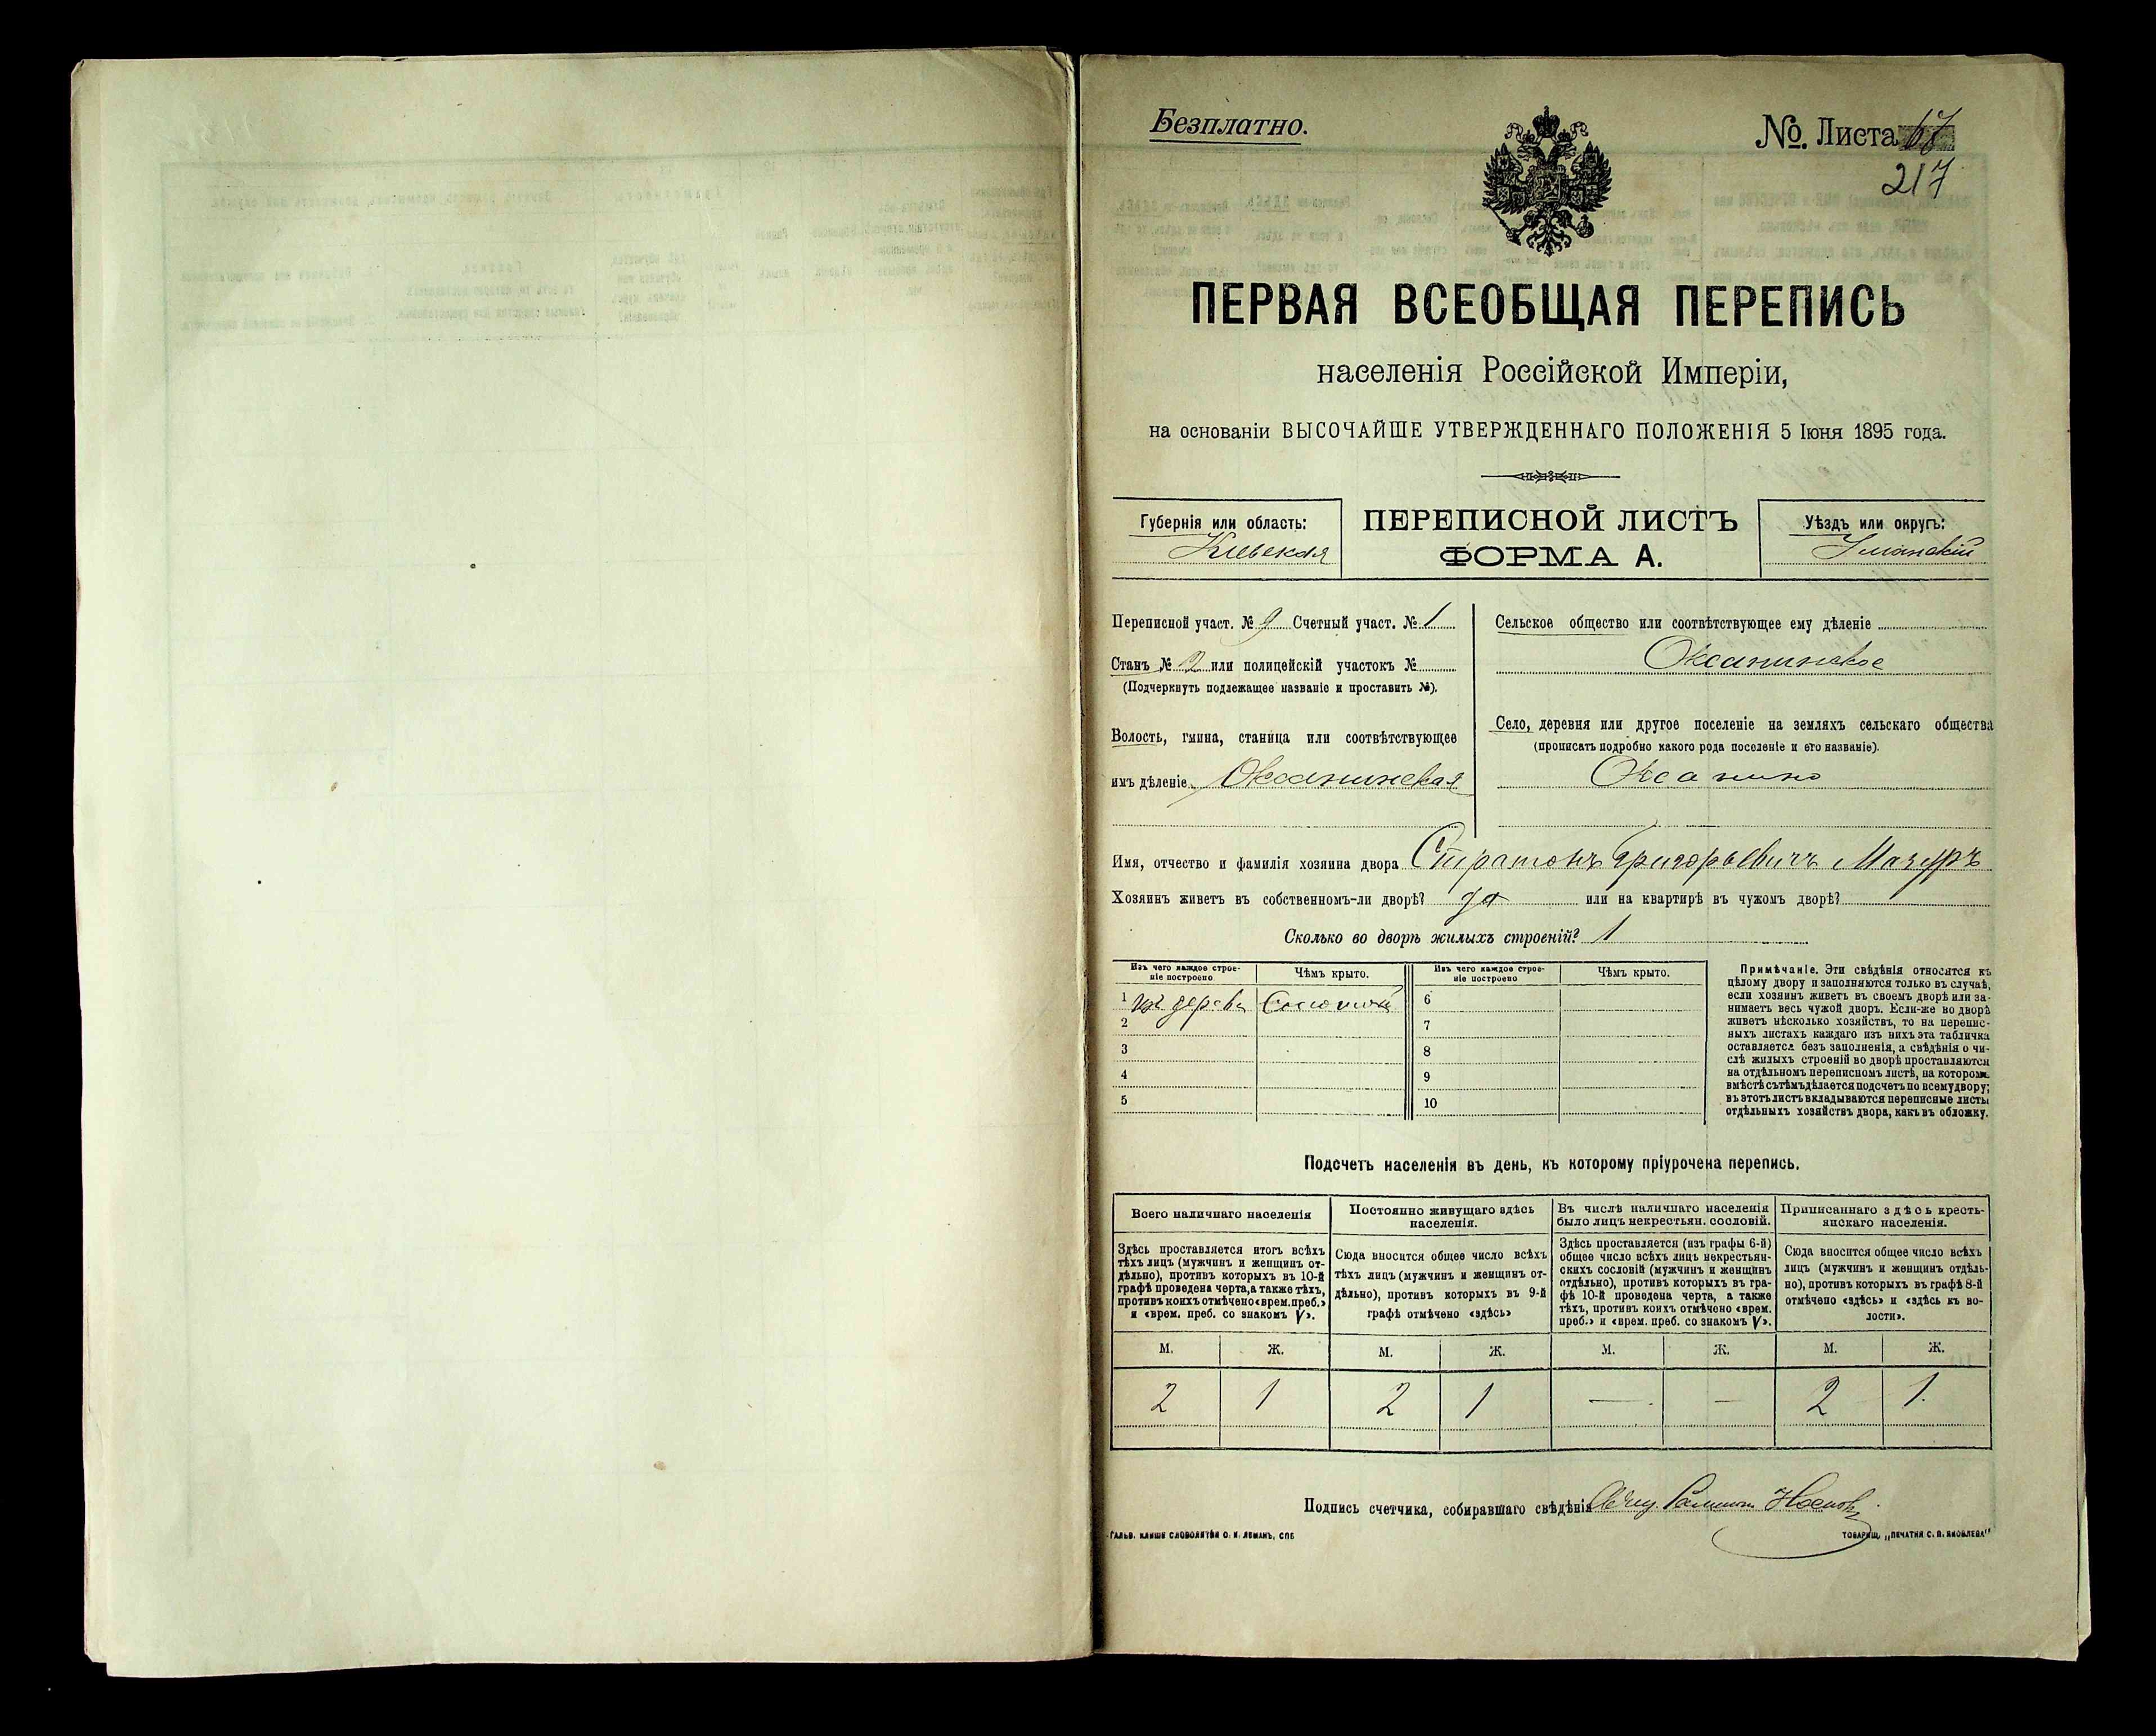 Безплатно.
№. Листа 67
217
ПЕРВАЯ ВСЕОБЩАЯ ПЕРЕПИСЬ
населенія Россійской Имперіи,
на основаніи ВЫСОЧАЙШЕ УТВЕРЖДЕННАГО ПОЛОЖЕНІЯ 5 Іюня 1895 года.
Губернія или область:
Кіевская
ПЕРЕПИСНОЙ ЛИСТЪ
ФОРМА А.
Уѣздъ или округъ:
Уманскій
Переписной участ. № 9 Счетный участ. № 1
Станъ № 2 или полицейскій участокъ №
(Подчеркнуть подлежащее названіе и проставить №).
Волость, гмина, станица или соотвѣтствующее
имъ дѣленіе Оксанинская
Сельское общество или соотвѣтствующее ему дѣленіе
Оксанинское
Село, деревня или другое поселеніе на земляхъ сельскаго общества
(прописать подробно какого рода поселеніе и его названіе).
Оксанино
Имя, отчество и фамилія хозяина двора Стратонъ Григорьевичъ Мазуръ
Хозяинъ живетъ въ собственномъ-ли дворѣ? да или на квартирѣ въ чужомъ дворѣ?
Сколько во дворѣ жилыхъ строеній? 1
Изъ чего каждое строе-
ніе построено
Чѣмъ крыто.
Изъ чего каждое строе-
ніе построено
Чѣмъ крыто.
1 изъ дерева Соломой 6
2 7
3 8
4 9
5 10
Примѣчаніе. Эти свѣдѣнія относятся къ
цѣлому двору и заполняются только въ случаѣ,
если хозяинъ живетъ въ своемъ дворѣ или за-
нимаетъ весь чужой дворъ. Если-же во дворѣ
живетъ нѣсколько хозяйствъ, то на перепис-
ныхъ листахъ каждаго изъ нихъ эта табличка
оставляется безъ заполненія, а свѣдѣнія о чи-
слѣ жилыхъ строеній во дворѣ проставляются
на отдѣльномъ переписномъ листѣ, на которомъ
вмѣстѣ съ тѣмъ дѣлается подсчетъ по всему двору;
въ этотъ листъ вкладываются переписные листы
отдѣльныхъ хозяйствъ двора, какъ въ обложку.
Подсчетъ населенія въ день, къ которому пріурочена перепись.
Всего наличнаго населенія
Здѣсь проставляется итогъ всѣхъ
тѣхъ лицъ (мужчинъ и женщинъ от-
дѣльно), противъ которыхъ въ 10-й
графѣ проведена черта, а также тѣхъ,
противъ коихъ отмѣчено «врем. преб.»
и «врем. преб. со знакомъ V».
Постоянно живущаго здѣсь
населенія.
Сюда вносится общее число всѣхъ
тѣхъ лицъ (мужчинъ и женщинъ от-
дѣльно), противъ которыхъ въ 9-й
графѣ отмѣчено «здѣсь»
Въ числѣ наличнаго населенія
было лицъ некрестьян. сословій.
Здѣсь проставляется (изъ графы 6-й)
общее число всѣхъ лицъ некрестьян-
скихъ сословій (мужчинъ и женщинъ
отдѣльно), противъ которыхъ въ гра-
фѣ 10-й проведена черта, а также
тѣхъ, противъ коихъ отмѣчено «врем.
преб.» и «врем. преб. со знакомъ V».
Приписаннаго здѣсь кресть-
янскаго населенія.
Сюда вносится общее число всѣхъ
лицъ (мужчинъ и женщинъ отдѣль-
но), противъ которыхъ въ графѣ 8-й
отмѣчено «здѣсь» и «здѣсь къ во-
лости».
М. Ж. М. Ж. М. Ж. М. Ж.
2 1 2 1 — — 2 1.
Подпись счетчика, собиравшаго свѣдѣнія
ГАЛЬВ. КЛИШЕ СЛОВОЛИТНИ О. И. ЛЕМАНЪ, СПБ
ТОВАРИЩ. „ПЕЧАТНЯ С. П. ЯКОВЛЕВА"